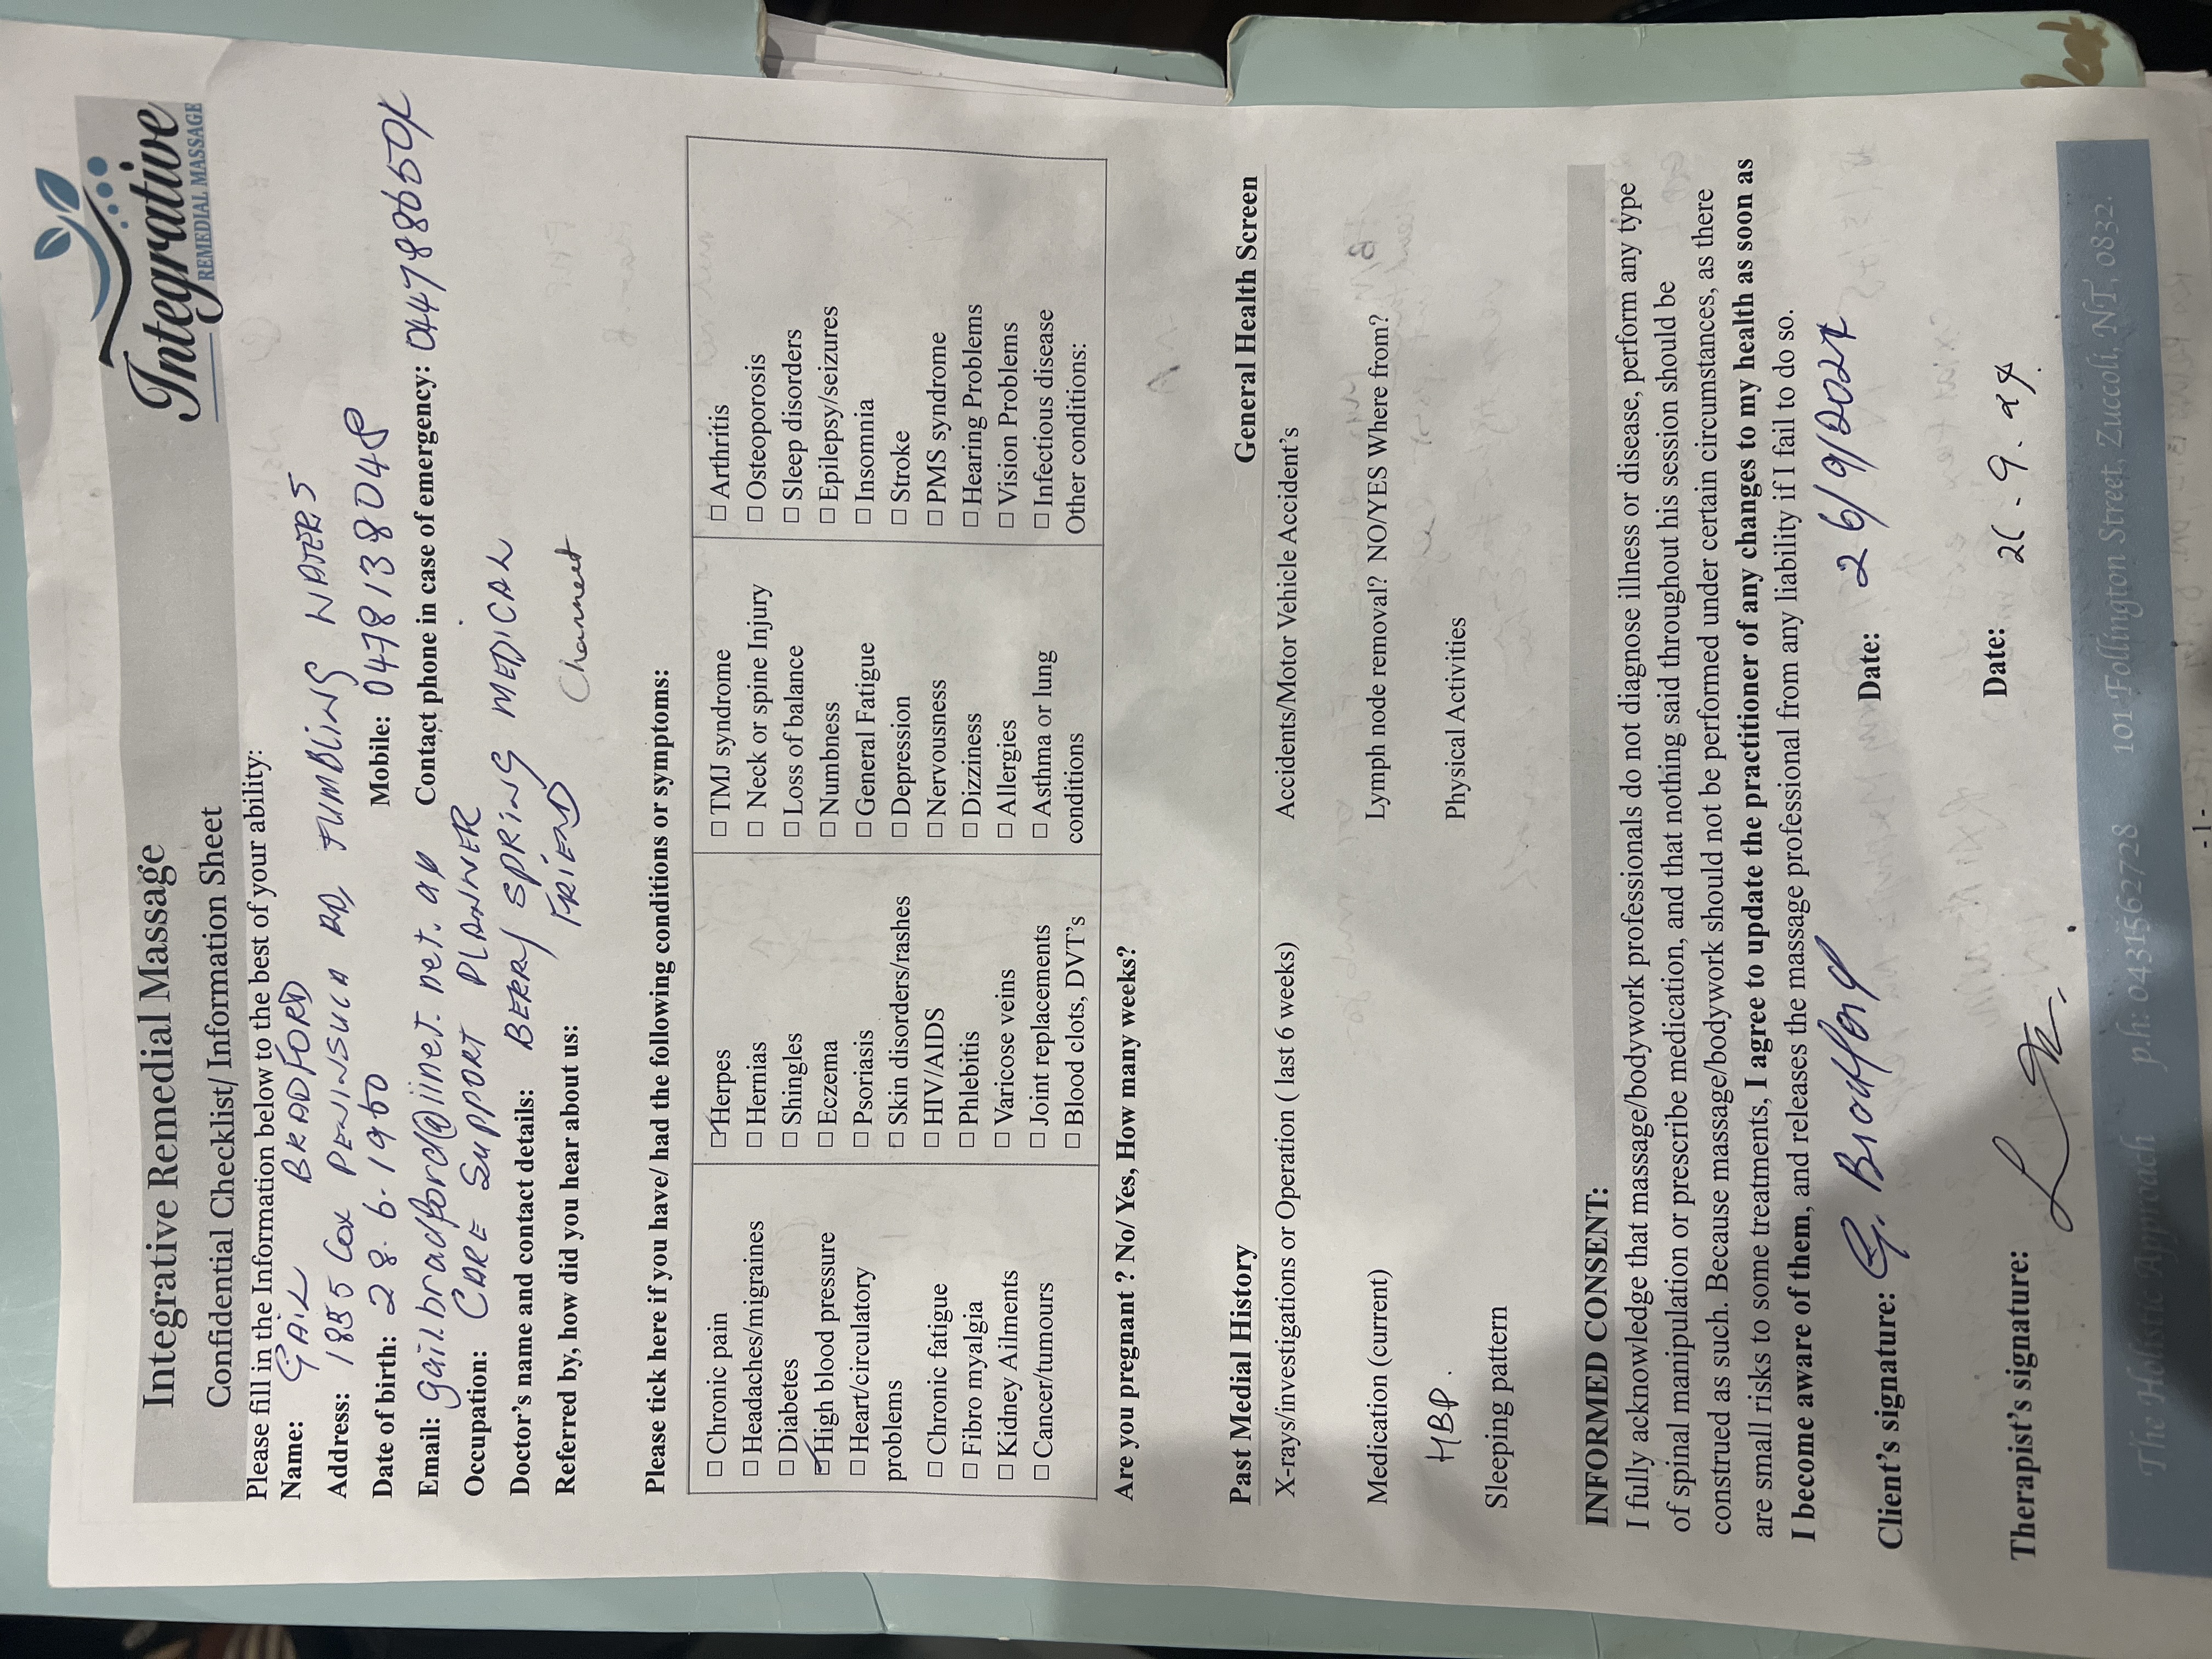 Integrative Remedial Massage
Confidential Checklist/ Information Sheet
Integrative
REMEDIAL MASSAGE
Please fill in the Information below to the best of your ability:
Name: GAIL BRADFORD
Address: 1855 Cox PENINSULA RD TUMBLING WATERS
Date of birth: 28.6.1960 Mobile: 0478138048
Email: gailbradford@iinet.net.au Contact phone in case of emergency:
Occupation: CARE SUPPORT PLANNER
Doctor's name and contact details: BERRY SPRING MEDICAL
Referred by, how did you hear about us: FRIEND
Please tick here if you have/ had the following conditions or symptoms:
☐ Chronic pain
☐ Headaches/migraines
☐ Diabetes
☑ High blood pressure
☐ Heart/circulatory
problems
☐ Chronic fatigue
☐ Fibro myalgia
☐ Kidney Ailments
☐ Cancer/tumours
☑ Herpes
☐ Hernias
☐ Shingles
☐ Eczema
☐ Psoriasis
☐ Skin disorders/rashes
☐ HIV/AIDS
☐ Phlebitis
☐ Varicose veins
☐ Joint replacements
☐ Blood clots, DVT's
☐ TMJ syndrome
☐ Neck or spine Injury
☐ Loss of balance
☐ Numbness
☐ General Fatigue
☐ Depression
☐ Nervousness
☐ Dizziness
☐ Allergies
☐ Asthma or lung
conditions
☐ Arthritis
☐ Osteoporosis
☐ Sleep disorders
☐ Epilepsy/seizures
☐ Insomnia
☐ Stroke
☐ PMS syndrome
☐ Hearing Problems
☐ Vision Problems
☐ Infectious disease
Other conditions:
Are you pregnant ? No/ Yes, How many weeks?
Past Medial History General Health Screen
X-rays/investigations or Operation ( last 6 weeks) Accidents/Motor Vehicle Accident's
Medication (current) Lymph node removal? NO/YES Where from?
HBP.
Physical Activities
Sleeping pattern
INFORMED CONSENT:
I fully acknowledge that massage/bodywork professionals do not diagnose illness or disease, perform any type
of spinal manipulation or prescribe medication, and that nothing said throughout his session should be
construed as such. Because massage/bodywork should not be performed under certain circumstances, as there
are small risks to some treatments, I agree to update the practitioner of any changes to my health as soon as
I become aware of them, and releases the massage professional from any liability if I fail to do so.
Client's signature: G. Bradford Date: 26/9/2024
Therapist's signature: Date: 26.9.24.
The Holistic Approach p.h: 0431562728 101 Follington Street, Zuccoli, NT, 0832.
- 1 -